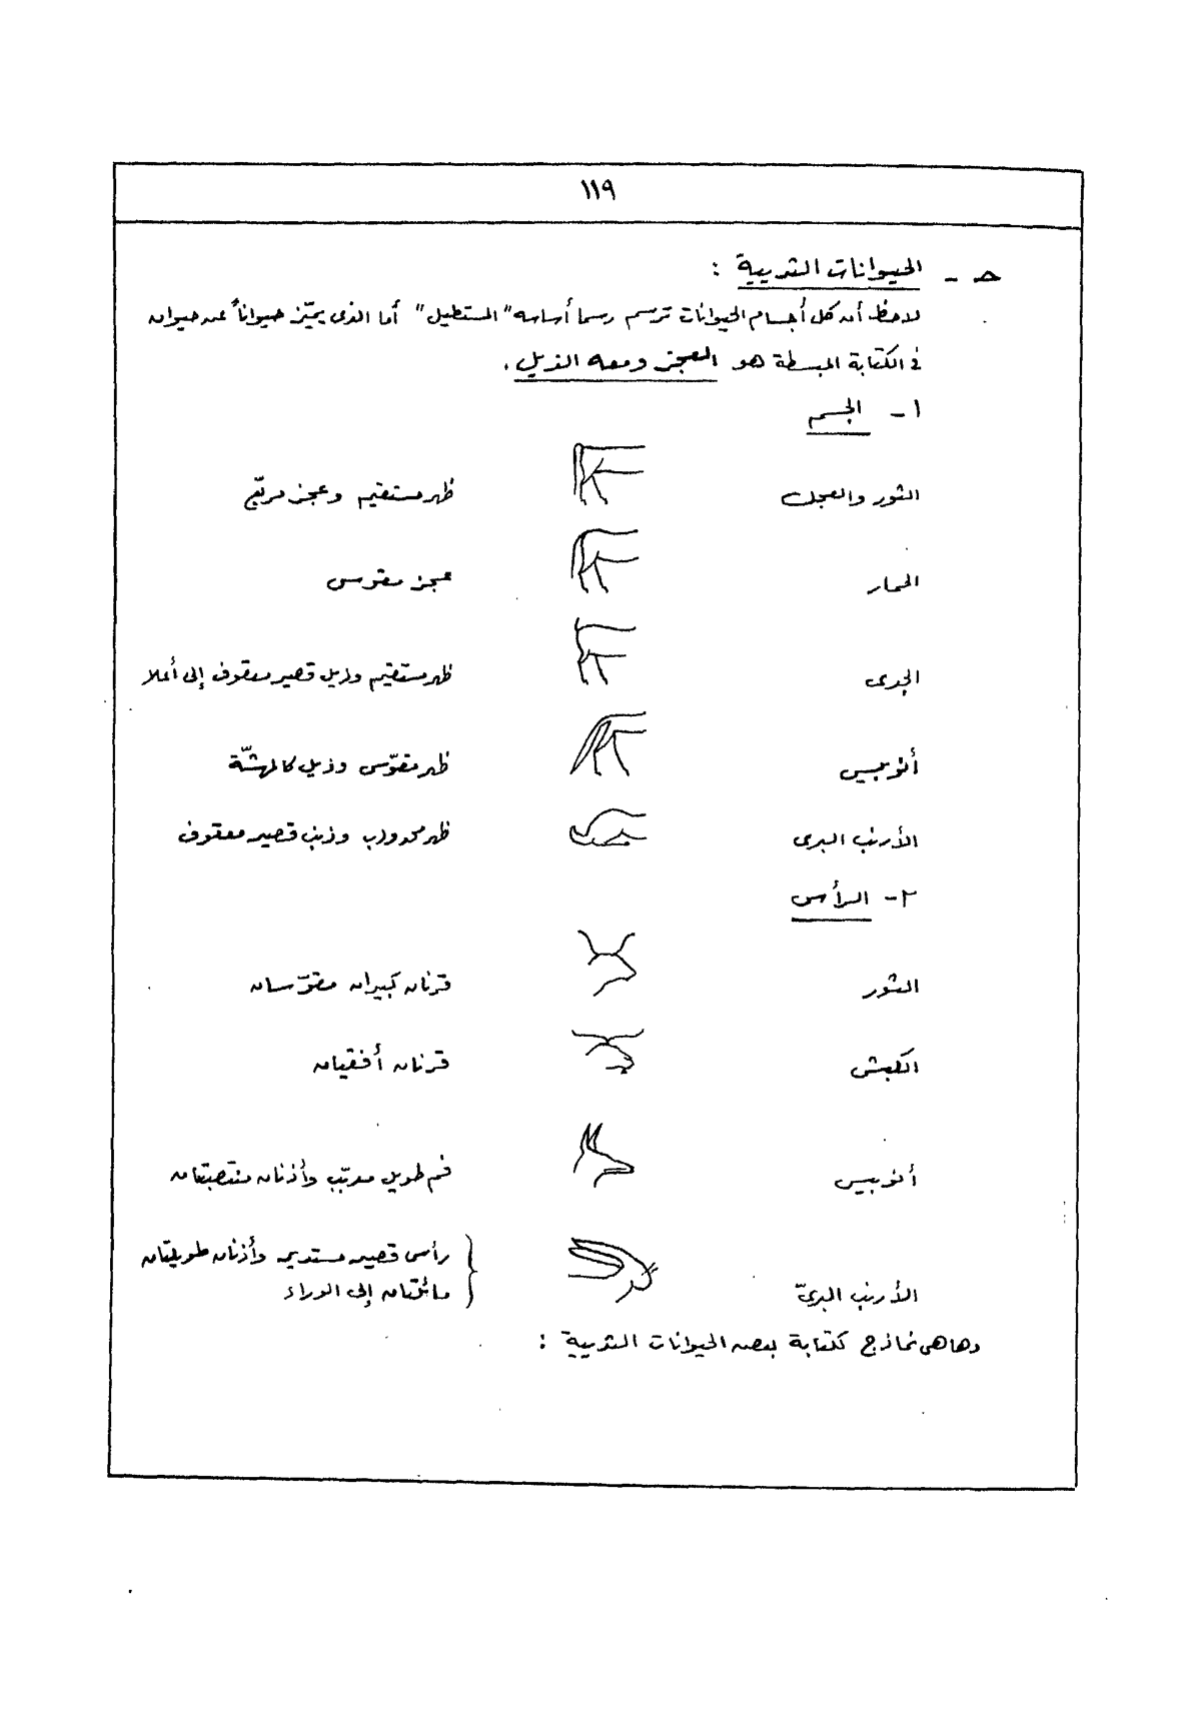 ١١٩
حـ - الحيوانات الثديية :
لاحظ أن كل أجسام الحيوانات ترسم رسما أساسه "المستطيل" أما الذى يميّز حيواناً عن حيوان
فى الكتابة المبسطة هو العجز ومعه الذيل .
١ - الجسم
الثور والعجل ظهر مستقيم وعجز مربّع
الحمار عجز مقوس
الجدى ظهر مستقيم وذيل قصير معقوف إلى أعلا
أنوبيس ظهر مقوّس وذيل كالمهشّة
الأرنب البرى ظهر محدودب وذنب قصير معقوف
٢ - الرأس
الثور قرنان كبيران مقوّسان
الكبش قرنان أفقيان
أنوبيس فم طويل مدبّب وأذنان منتصبتان
الأرنب البرىّ رأس قصير مستدير وأذنان طويلتان
مائلتان إلى الوراء
وها هى نماذج لكتابة بعض الحيوانات الثديية :